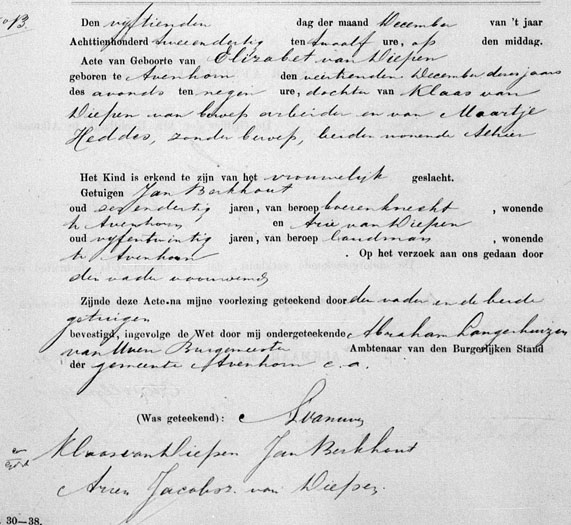 No 13.
Den vyftienden dag der maand December van 't jaar
Achttienhonderd twee en dertig ten twaalf ure, op den middag.
Acte van Geboorte van Elizabet van Diepen
geboren te Avenhorn den veertienden December dezes jaars
des avonds ten negen ure, dochter van Klaas van
Diepen van beroep arbeider en van Maartje
Heddes, zonder beroep, beiden wonende Alhier
Het Kind is erkend te zijn van het vrouwelyk geslacht.
Getuigen Jan Berkhout
oud zes en dertig jaren, van beroep boerenknecht, wonende
te Avenhorn en Arie van Diepen
oud vyfentwintig jaren, van beroep landman, wonende
te Avenhorn. Op het verzoek aan ons gedaan door
den vader voornoemd
Zijnde deze Acte na mijne voorlezing geteekend door den vader en de beide
getuigen
bevestigd, ingevolge de Wet door mij ondergeteekende Abraham Langerhuizen
van Uven Burgemeester Ambtenaar van den Burgerlijken Stand
der gemeente Avenhorn c.a.
(Was geteekend): A van Uven
Klaas van Diepen Jan Berkhout
Arien Jacobsz. van Diepen
30—38.